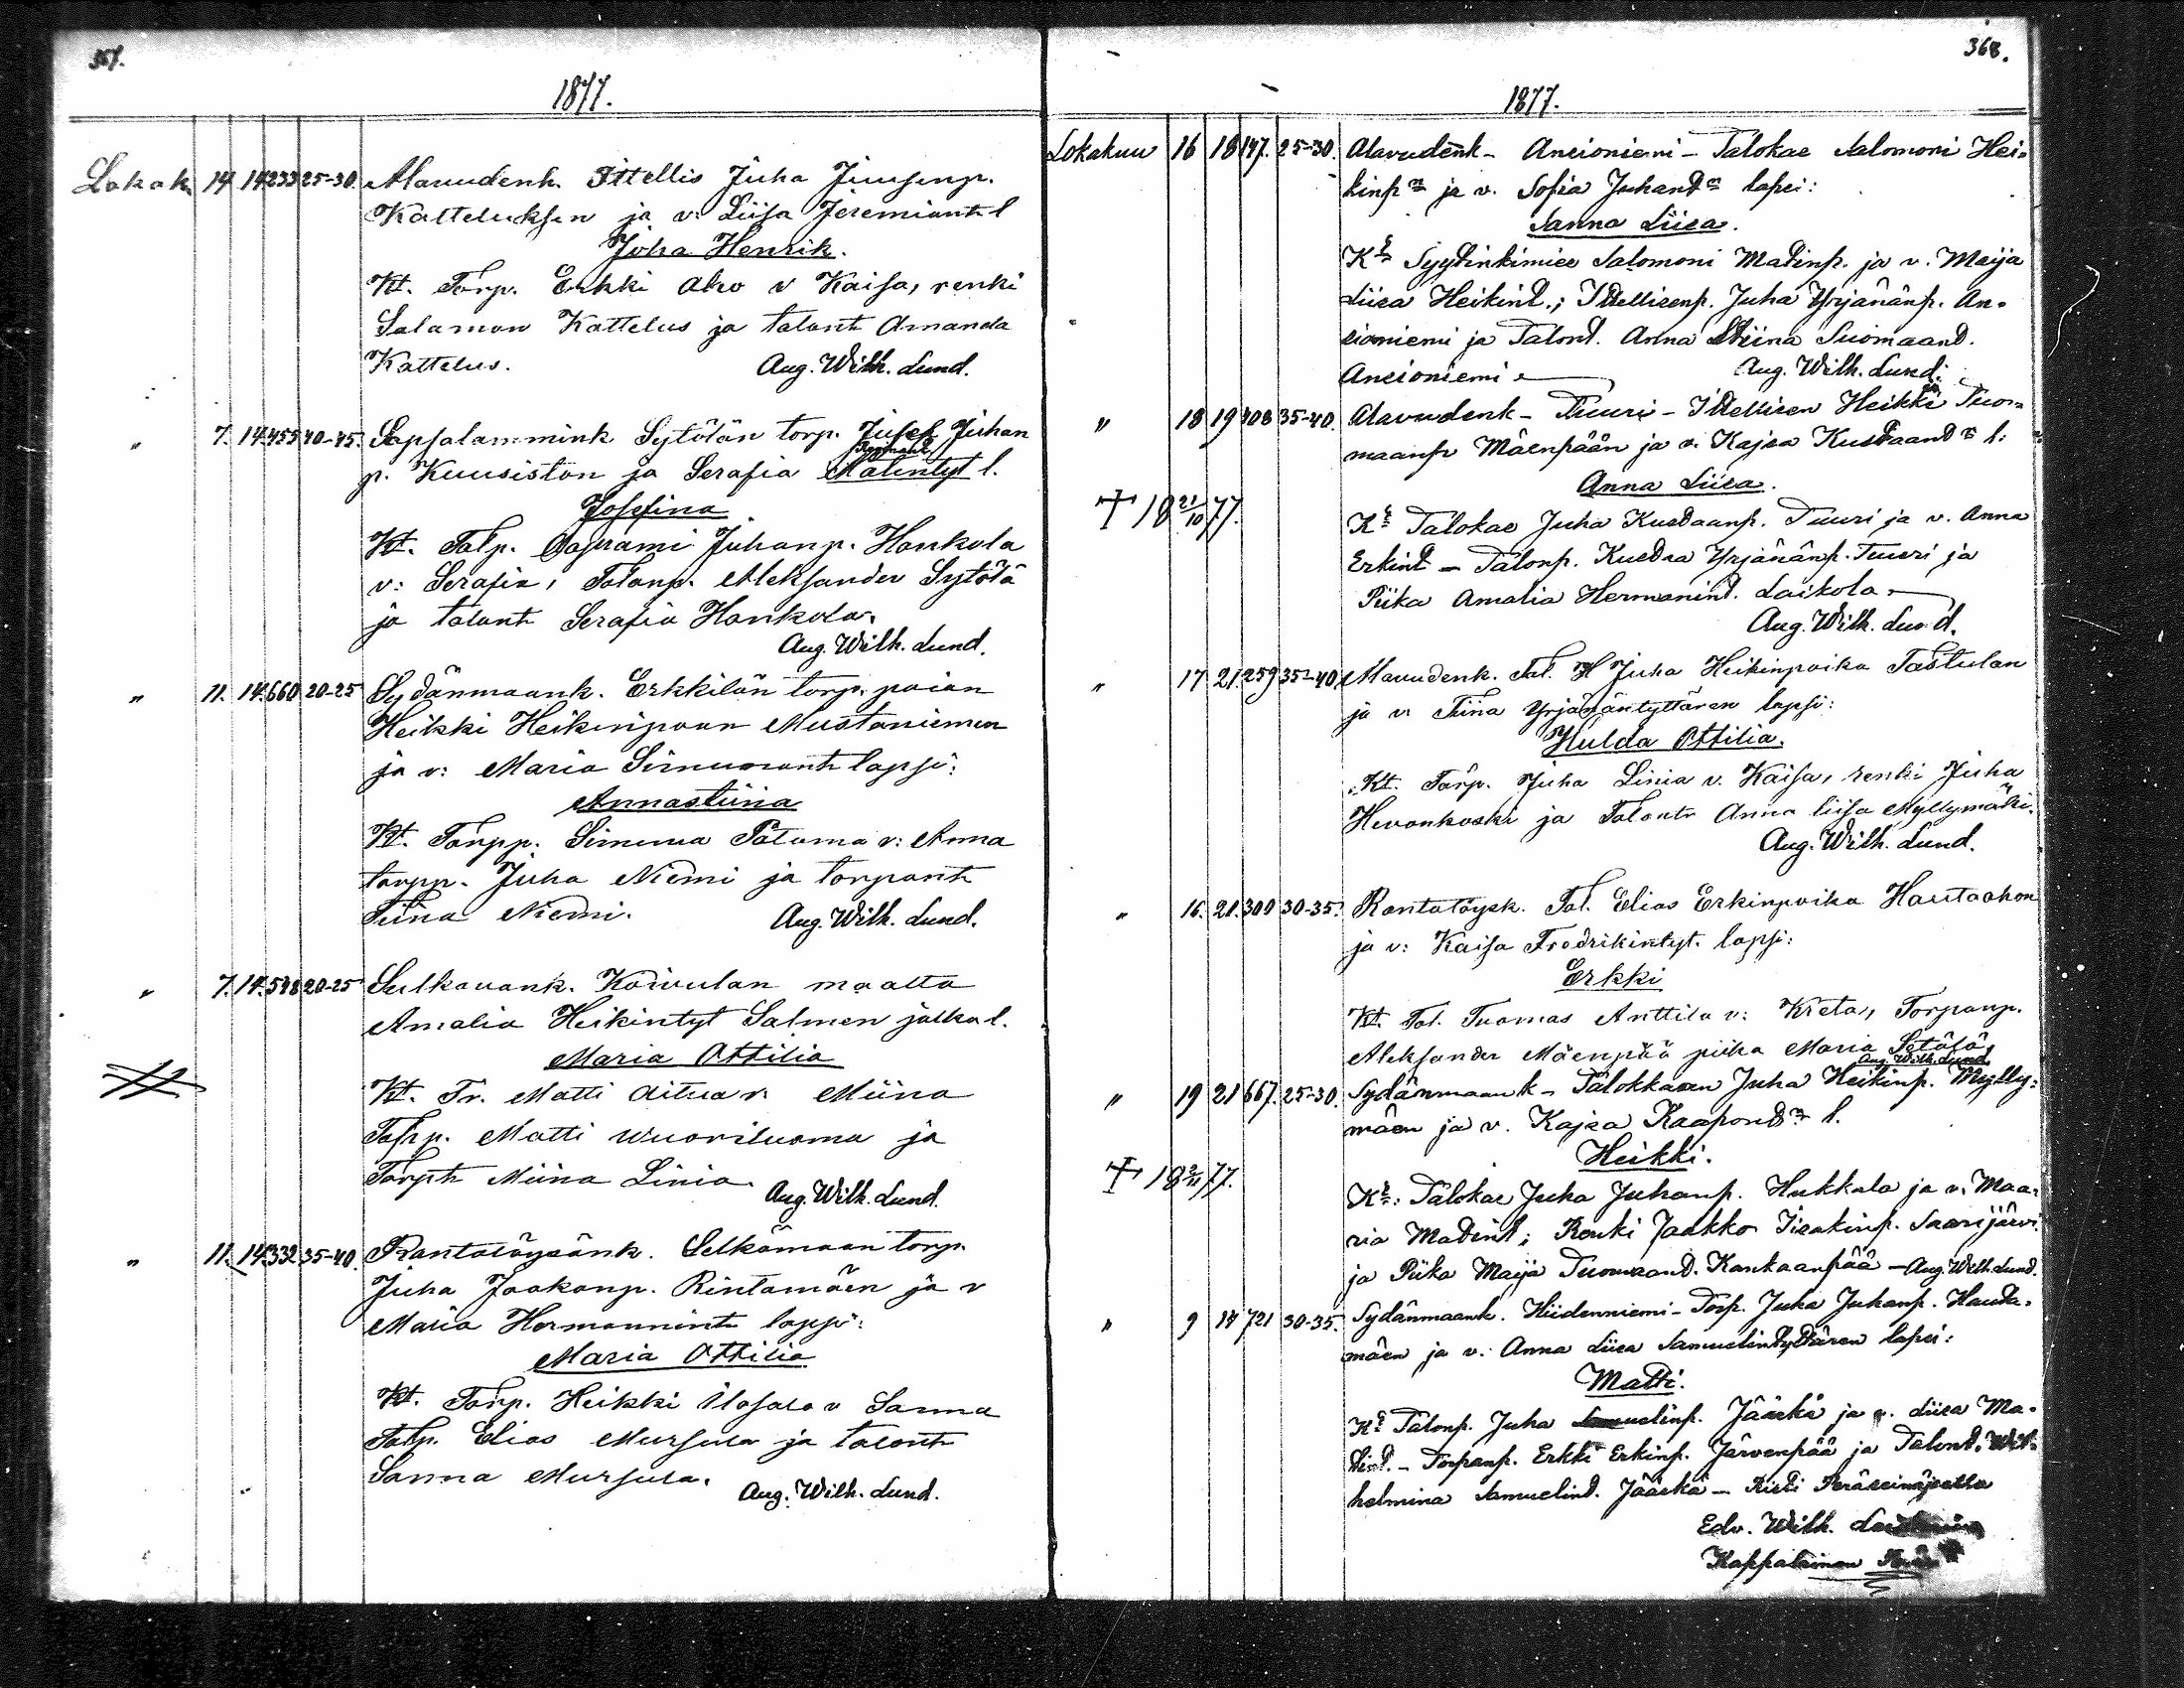 367.
1877.
Lokak. 14 14 233 25-30 Alavudenk. Ittellis Juha Juusenp.
Katteluksen ja v: Liisa Jeremiantl
Joha Henrik.
Kt. Torp. Erkki Aho v Kaisa, renki
Salamon Kattelus ja talont Amanda
Kattelus. Aug. Wilh. Lund.
" 7. 14. 455 40-45. Sapsalammink Sytölän torp. Jusek Juhan
p. Kuusiston ja Serafia Matintyt l.
Josefina
Kt. Talp. Aaprami Juhanp. Hankola
v: Serafia, Talonp. Aleksander Sytölä
ja talont Serafia Hankola.
Aug. Wilh. Lund.
" 11. 14. 660 20-25 Sydänmaank. Erkkilän torp. poian
Heikki Heikinpoan Mustaniemen
ja v: Maria Simuonant lapsi:
Annastiina
Kt. Torpp. Simuna Patama v: Anna
torpp. Juha Niemi ja torpant
Tiina Niemi. Aug. Wilh. Lund.
" 7. 14. 598 20-25 Sulkavank. Koivulan maalta
Amalia Heikintyt Salmen jalka l.
Maria Ottilia
Kt. Tr. Matti Aitua v. Miina
Talp. Matti Wuoriluoma ja
Torpt Miina Linia.
Aug. Wilh. Lund.
" 11. 14. 332 35-40. Rantatöysänk. Selkämaan torp.
Juha Jaakonp. Rintamäen ja v
Maria Hermannint lapsi:
Maria Ottilia
Kt. Torp. Heikki Ulasala v Sanna
Talp. Elias Mursula ja talont
Sanna Mursula.
Aug. Wilh. Lund.
368.
1877.
Lokakuu 16 18 147. 25-30. Alavudenk - Ancioniemi - Talokas Salomoni Hei-
kinpn ja v. Sofia Juhandn lapsi:
Sanna Liisa.
Kt Syytinkimies Salomoni Matinp. ja v. Maija
Liisa Heikint.; Ittellisenp. Juha Yrjänänp. An-
sioniemi ja Talont. Anna Stiina Tuomaand.
Ancioniemi Aug. Wilh. Lund.
" 18 19 408 35-40. Alavudenk - Tuuri - Ittellisen Heikki Tuo-
maanp Mäenpään ja v. Kajsa Kustaandn l:
Anna Liisa.
† 18 21/10 77.
Kt Talokas Juha Kustaanp. Tuuri ja v. Anna
Erkint - Talonp. Kustaa Yrjänänp. Tuuri ja
Piika Amalia Hermanint. Laikola
Aug. Wilh. Lund.
" 17 21. 259 35-40 Alavudenk. Tal. H Juha Heikinpoika Tastulan
ja v: Tiina Yrjänäntyttären lapsi:
Hulda Ottilia.
Kt. Torp. Juha Linia v. Kaisa, renki Juha
Hevonkoski ja Talont Anna liisa Myllymäki.
Aug. Wilh. Lund.
" 16. 21. 309 30-35. Rantatöysk. Tal. Elias Erkinpoika Hautaahon
ja v: Kaisa Fredrikintyt. lapsi:
Erkki
Kt. Tal. Tuomas Anttila v: Kreta, Torpanp.
Aleksander Mäenpää piika Maria Setälä,
Aug. Wilh. Lund.
" 19 21 667. 25-30. Sydänmaank - Talokkaan Juha Heikinp. Mylly-
mäen ja v. Kajsa Kaapondn l.
Heikki.
† 18 2/11 77.
Kt: Talokas Juha Juhanp. Hukkala ja v. Maa-
ria Matint; Renki Jaakko Iisakinp. Saarijärvi
ja Piika Maija Tuomaand. Kankaanpää - Aug. Wilh. Lund.
" 9 14 721 30-35. Sydänmaank. Hiidenniemi - Torp. Juha Juhanp. Hauta-
mäen ja v. Anna Liisa Samuelintyttären lapsi:
Matti.
Kt Talonp. Juha Samuelinp. Jääskä ja v. Liisa Ma-
tint. - Torpanp. Erkki Erkinp. Järvenpää ja Talont. Wil-
helmina Samuelint. Jääskä - Risti Peräseinäjoella
Edv. Wilh.
Kappalainen